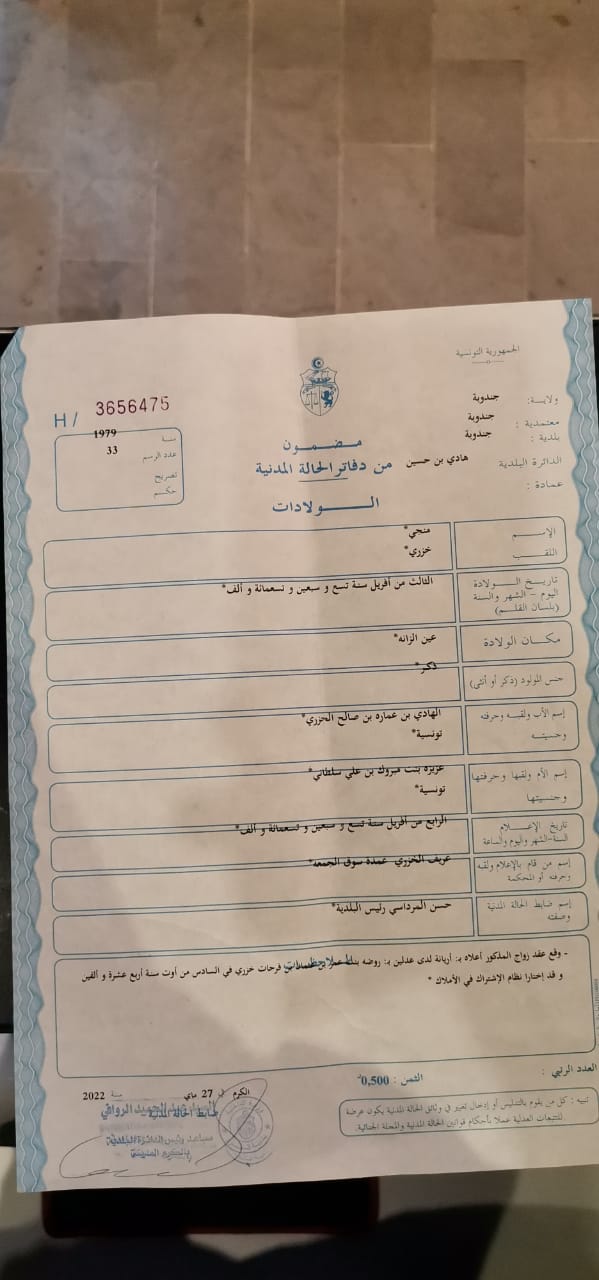 الجمهورية التونسية
ولاية: جندوبة
معتمدية: جندوبة
بلدية: جندوبة
الدائرة البلدية هادي بن حسين
عمادة:
H/ 3656475
سنة 1979
عدد الرسم 33
تصريح
حكم
مضمون
من دفاتر الحالة المدنية
الولادات
الإسم منجي*
اللقب خزري*
تاريخ الولادة الثالث من أفريل سنة تسع و سبعين و تسعمائة و ألف*
اليوم - الشهر والسنة
(بلسان القلم)
مكان الولادة عين الزانه*
جنس المولود (ذكر أو أنثى) ذكر*
إسم الأب ولقبه وحرفته الهادي بن عماره بن صالح الخزري*
وجنسيته تونسية*
إسم الأم ولقبها وحرفتها عزيزه بنت مبروك بن علي سلطاني*
وجنسيتها تونسية*
تاريخ الإعلام الرابع من أفريل سنة تسع و سبعين و تسعمائة و ألف*
السنة-الشهر واليوم والساعة
إسم من قام بالإعلام ولقبه عريف الخزري عمدة سوق الجمعه*
وحرفته أو المحكمة
إسم ضابط الحالة المدنية حسن المرداسي رئيس البلدية*
وصفته
- وقع عقد زواج المذكور أعلاه بـ: أريانة لدى عدلين بـ: روضه بنت فرحات خزري في السادس من أوت سنة أربع عشرة و ألفين
و قد إختارا نظام الإشتراك في الأملاك *
العدد الرتبي:
الثمن: 0,500د
تنبيه: كل من يقوم بالتدليس أو إدخال تغيير في وثائق الحالة المدنية يكون عرضة
للتتبعات العدلية عملا بأحكام قوانين الحالة المدنية والمجلة الجنائية.
الكرم في 27 ماي سنة 2022
ضابط الحالة المدنية
عبد الحميد الروافي
مساعد رئيس الدائرة البلدية